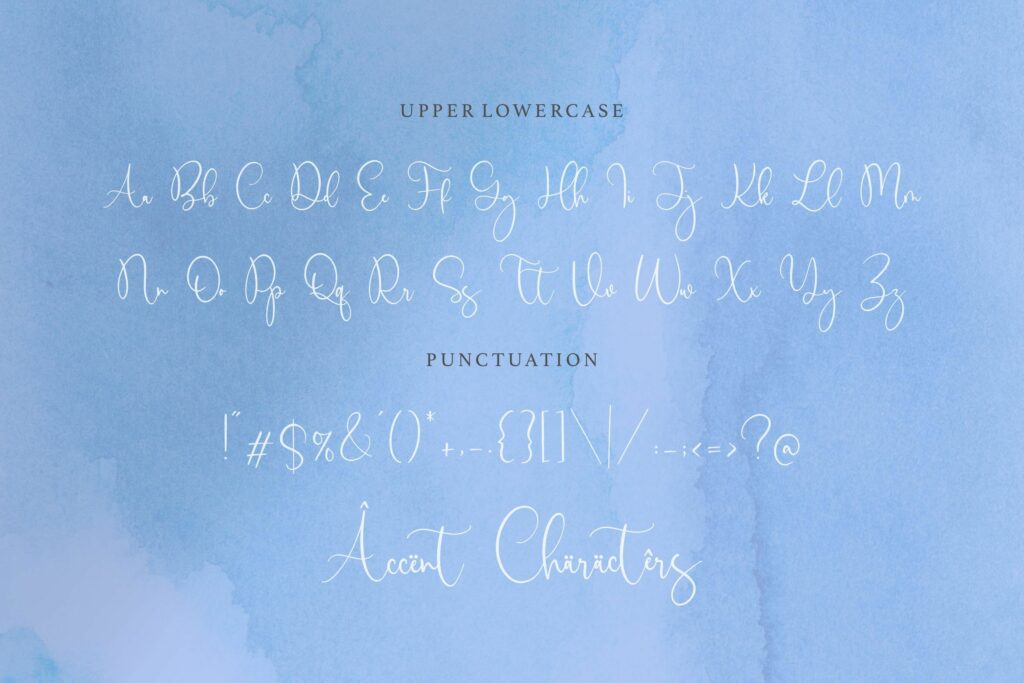 UPPER LOWERCASE
Aa Bb Cc Dd Ee Ff Gg Hh Ii Jj Kk Ll Mm
Nn Oo Pp Qq Rr Ss Tt Uv Ww Xx Yy Zz
PUNCTUATION
!"#$%&'()*+,-.{}[]\|/:-;<=>?@
Âccënt Chäräctêrs